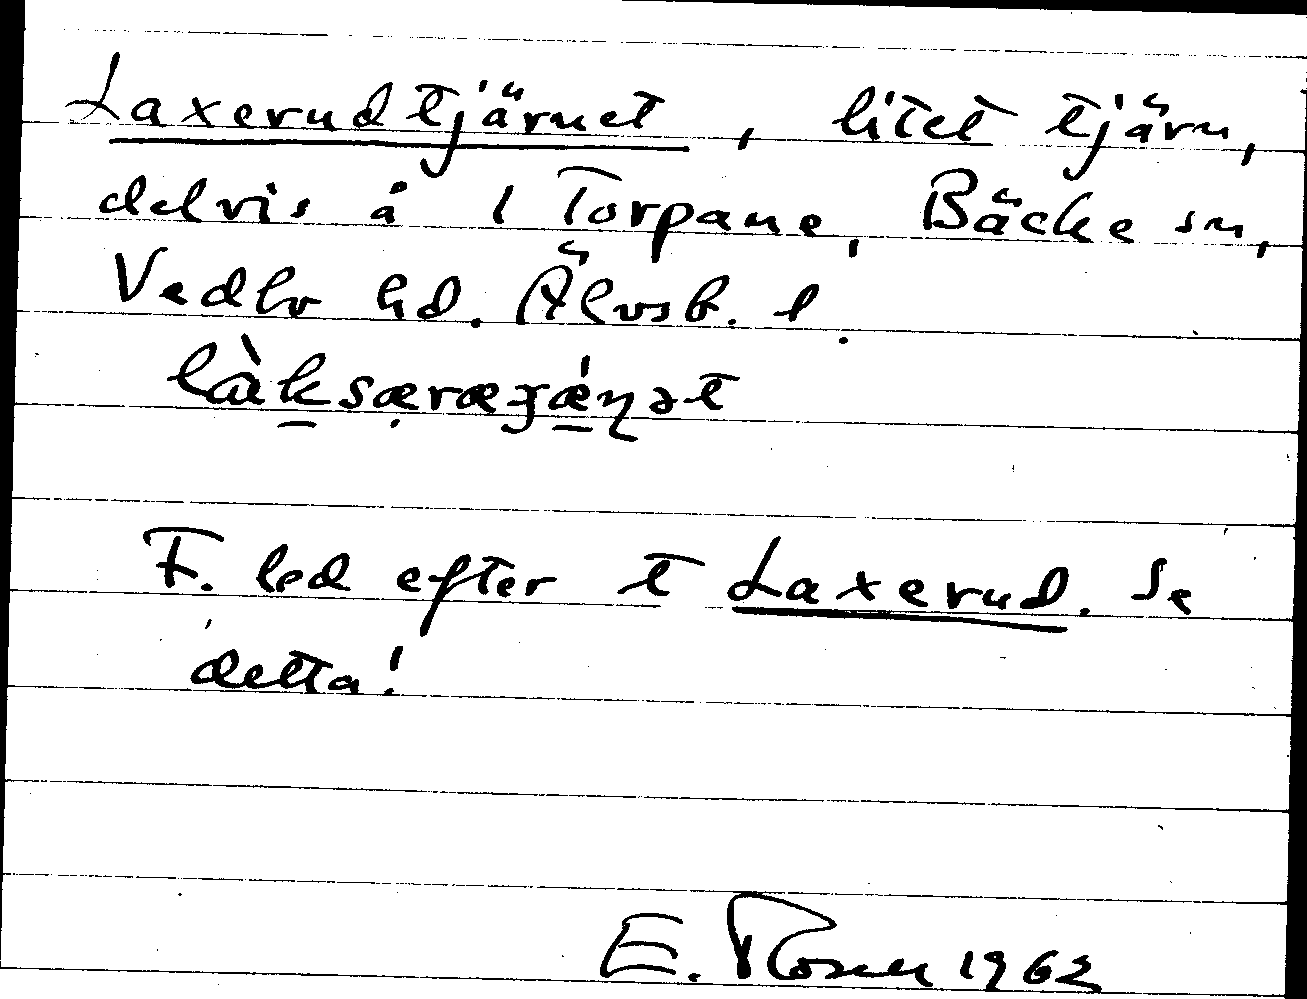 Laxerudtjärnet, litet tjärn,
delvis å 1 Torpane, Bäcke sn,
Vedbo hd. Älvsb. l.
làksæræɟǽɳət
F. led efter t Laxerud. Se
detta!
E. Rosen 1962